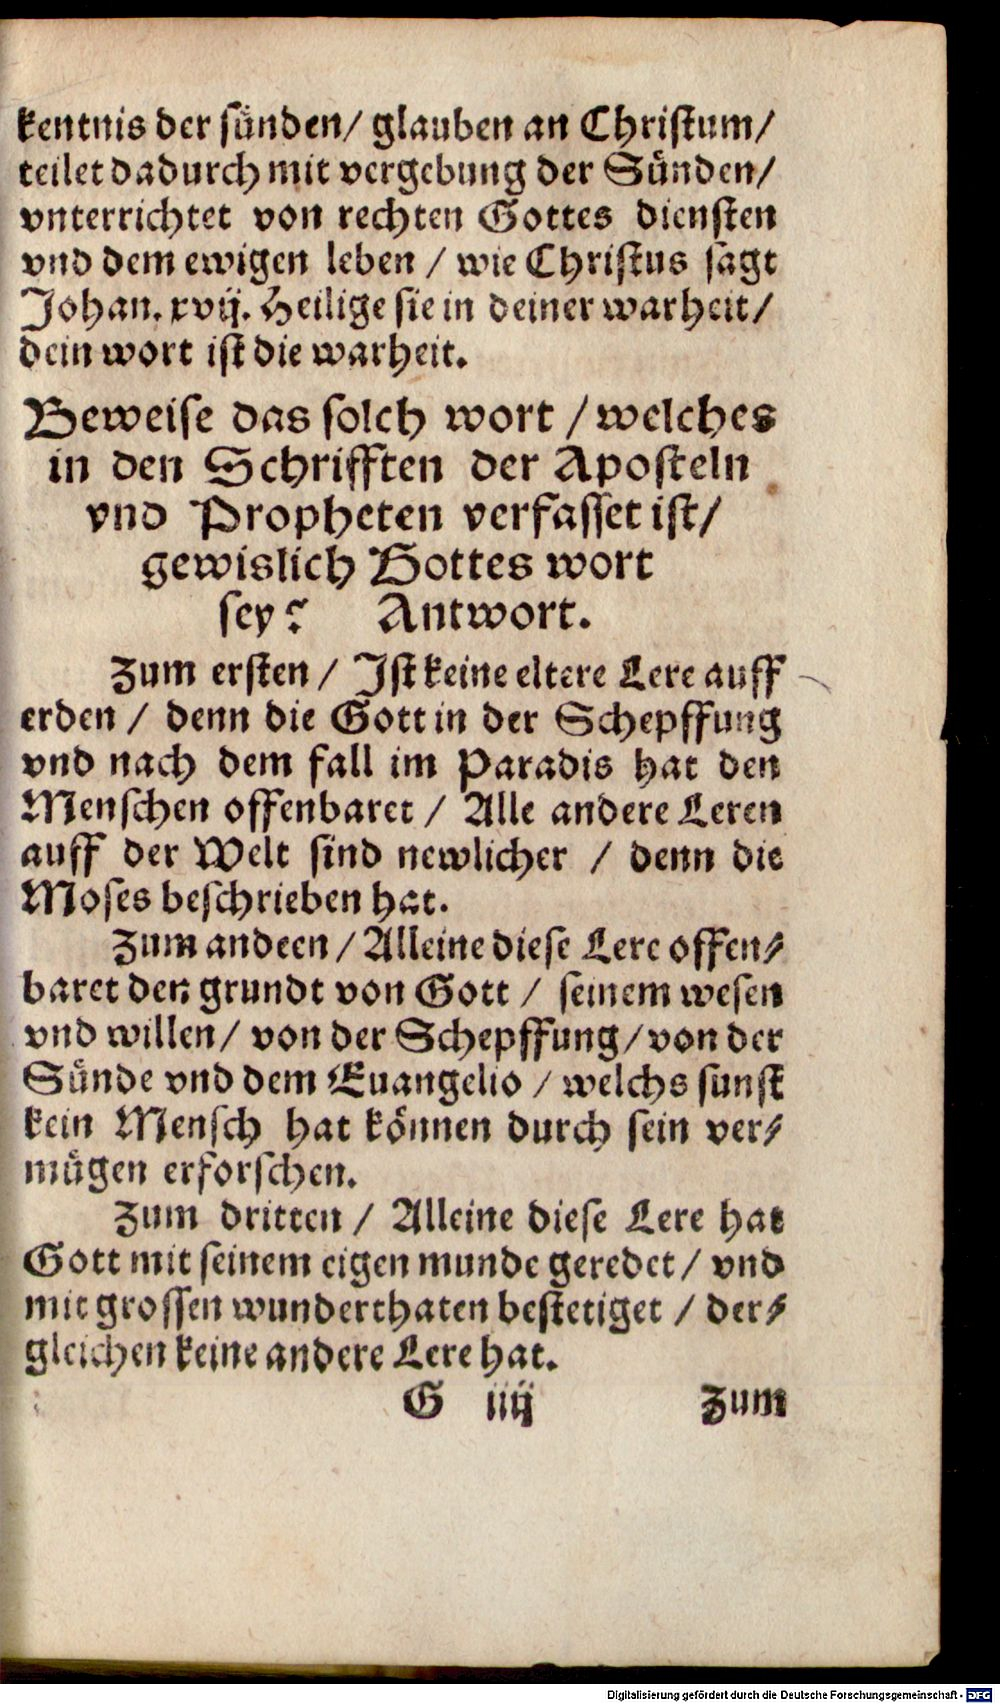 kentnis der sünden/ glauben an Christum/
teilet dadurch mit vergebung der Sünden/
vnterrichtet von rechten Gottes diensten
vnd dem ewigen leben / wie Christus sagt
Johan. xvij. Heilige sie in deiner warheit/
dein wort ist die warheit.
Beweise das solch wort / welches
in den Schrifften der Aposteln
vnd Propheten verfasset ist/
gewislich Gottes wort
sey? Antwort.
Zum ersten / Ist keine eltere Lere auff
erden / denn die Gott in der Schepffung
vnd nach dem fall im Paradis hat den
Menschen offenbaret / Alle andere Leren
auff der Welt sind newlicher / denn die
Moses beschrieben hat.
Zum andeen / Alleine diese Lere offen⸗
baret den grundt von Gott / seinem wesen
vnd willen/ von der Schepffung/ von der
Sünde vnd dem Euangelio / welchs sunst
kein Mensch hat können durch sein ver⸗
mügen erforschen.
Zum dritten / Alleine diese Lere hat
Gott mit seinem eigen munde geredet/ vnd
mit grossen wunderthaten bestetiget / der⸗
gleichen keine andere Lere hat.
G iiij Zum
Digitalisierung gefördert durch die Deutsche Forschungsgemeinschaft - DFG